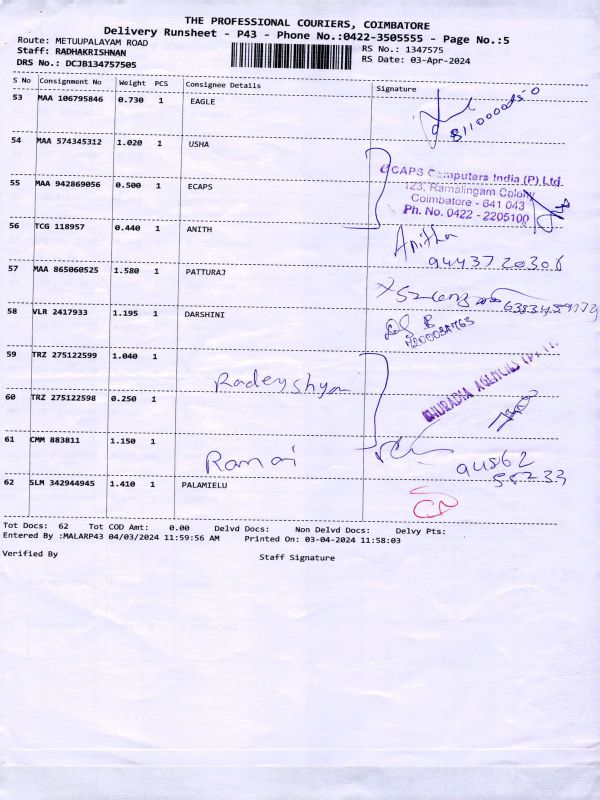 THE PROFESSIONAL COURIERS, COIMBATORE
Delivery Runsheet - P43 - Phone No.:0422-3505555 - Page No.:5
Route: METUUPALAYAM ROAD
RS No.: 1347575
Staff: RADHAKRISHNAN
RS Date: 03-Apr-2024
DRS No.: DCJB134757505
S No Consignment No Weight PCS Consignee Details Signature
53 MAA 106795846 0.730 1 EAGLE
54 MAA 574345312 1.020 1 USHA
CAPS Computers India (P) Ltd.
123, Ramalingam Colony
55 MAA 942869056 0.500 1 ECAPS
Coimbatore - 641 043
Ph. No. 0422 - 2205100
56 TCG 118957 0.440 1 ANITH
Anitha
9443720306
57 MAA 865060525 1.580 1 PATTURAJ
58 VLR 2417933 1.195 1 DARSHINI
59 TRZ 275122599 1.040 1
Radeyshyam
AGENCIES
60 TRZ 275122598 0.250 1
61 CMM 883811 1.150 1
Ramai
94862
55233
62 SLM 342944945 1.410 1 PALAMIELU
CN
Tot Docs: 62 Tot COD Amt: 0.00 Delvd Docs: Non Delvd Docs: Delvy Pts:
Entered By :MALARP43 04/03/2024 11:59:56 AM Printed On: 03-04-2024 11:58:03
Verified By Staff Signature